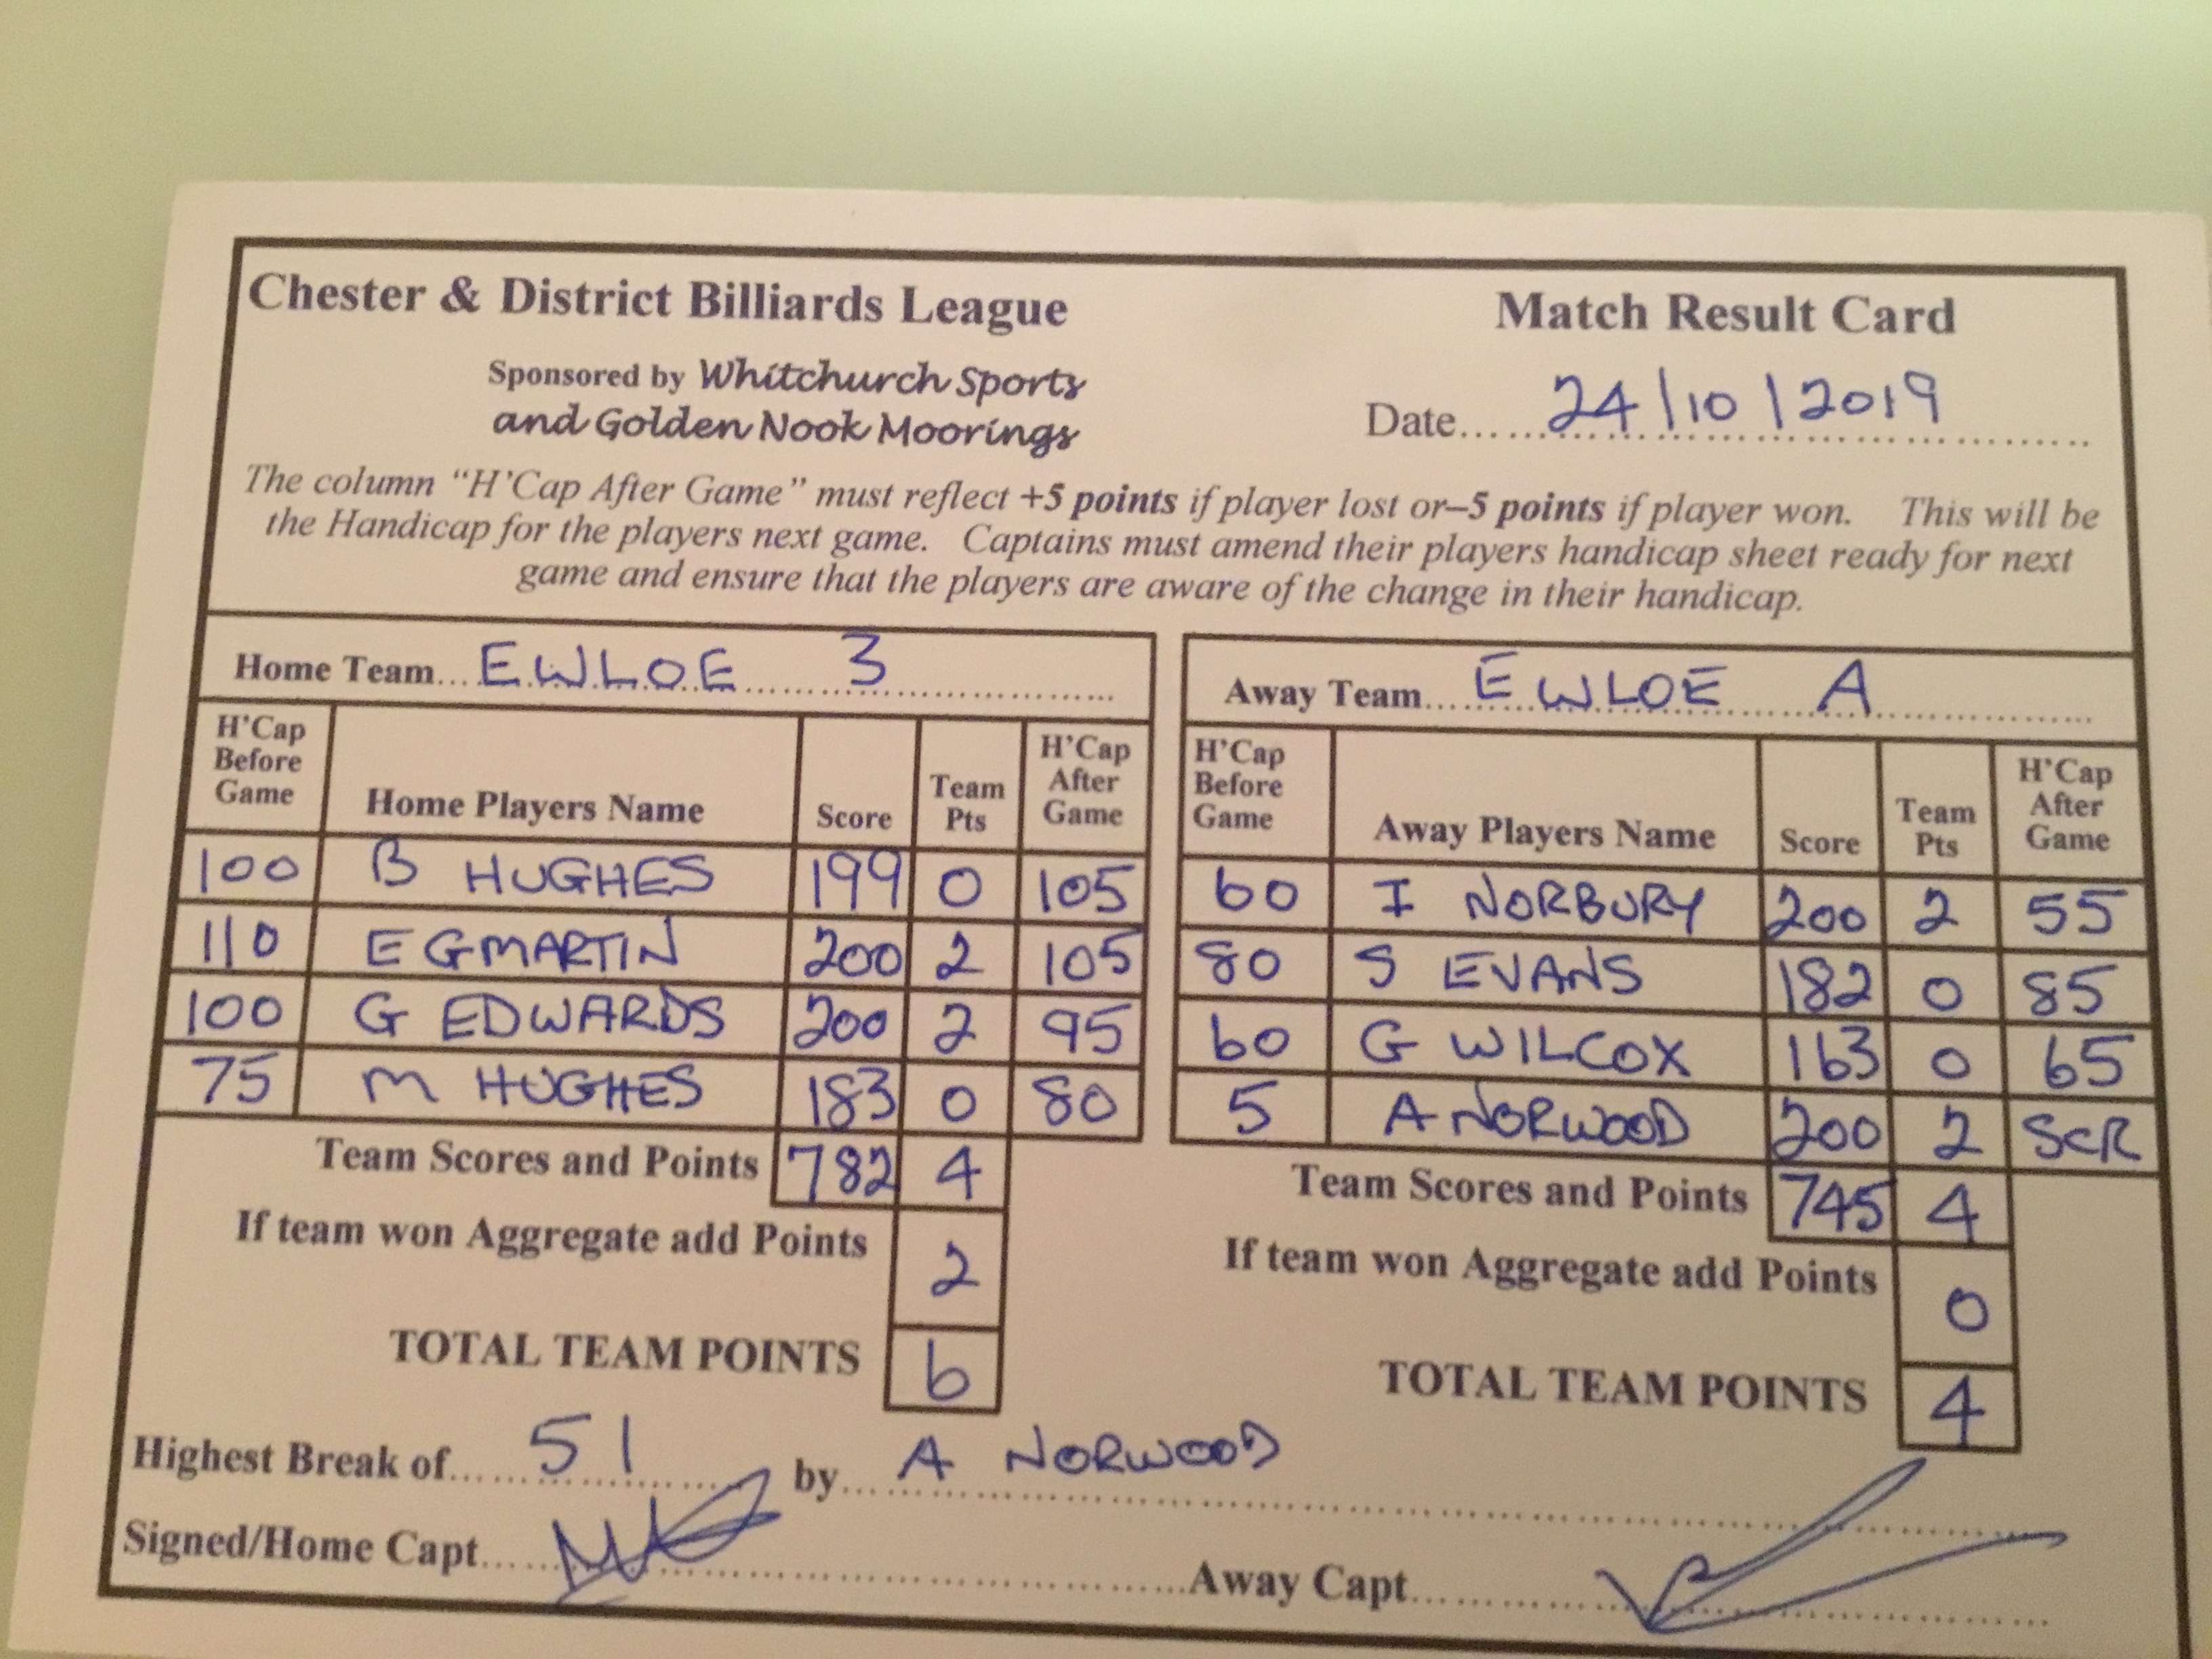 Chester & District Billiards League
Match Result Card
Sponsored by Whitchurch Sports
and Golden Nook Moorings
Date 24/10/2019
The column "H'Cap After Game" must reflect +5 points if player lost or–5 points if player won. This will be
the Handicap for the players next game. Captains must amend their players handicap sheet ready for next
game and ensure that the players are aware of the change in their handicap.
Home Team EWLOE 3
H'Cap Before Game Home Players Name Score Team Pts H'Cap After Game
100 B HUGHES 199 0 105
110 E G MARTIN 200 2 105
100 G EDWARDS 200 2 95
75 M HUGHES 183 0 80
Team Scores and Points 782 4
If team won Aggregate add Points 2
TOTAL TEAM POINTS 6
Away Team EWLOE A
H'Cap Before Game Away Players Name Score Team Pts H'Cap After Game
60 I NORBURY 200 2 55
80 S EVANS 182 0 85
60 G WILCOX 163 0 65
5 A NORWOOD 200 2 SCR
Team Scores and Points 745 4
If team won Aggregate add Points 0
TOTAL TEAM POINTS 4
Highest Break of 51 by A NORWOOD
Signed/Home Capt Away Capt